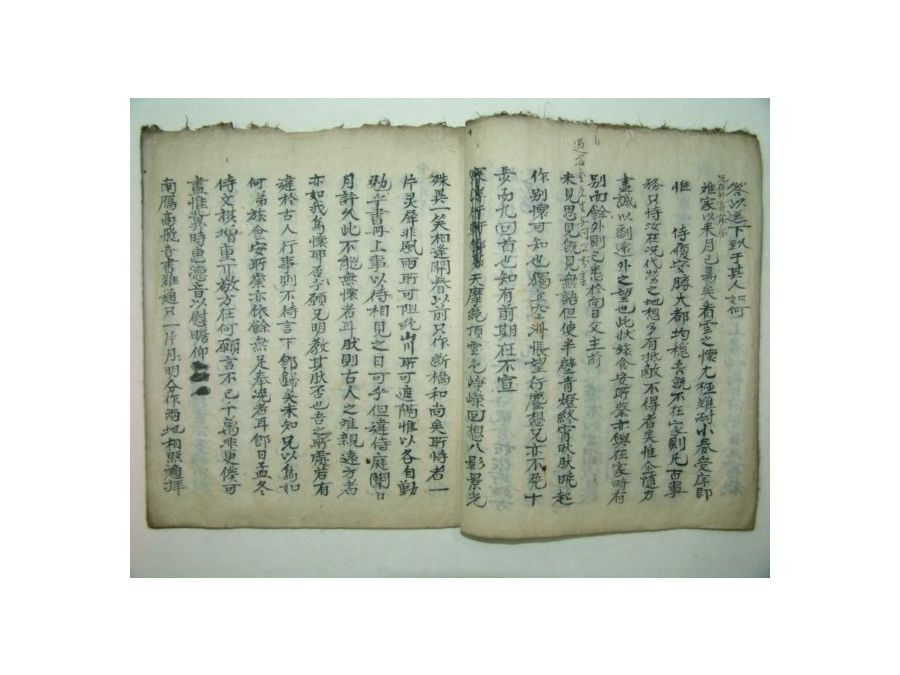 答以送下致于其人如何
離家以來月已易矣看雲之懷尤極難耐小春受庠即
惟 侍履安勝大都均穩吾旣不在家則凡百事
務只恃汝在況代勞之地想多有抵敵不得者矣惟企隨力
盡誠以副遠外之望也此狀旅食安所業亦與在家時有
別而餘外則已悉於向日父主前
未見思見旣見無語但使半壁靑燈終宵耿耿曉起
作別懷可知也獨立 洲悵望行塵想兄亦不免十
步而九回首也知有前期在不宣
天摩絶頂雲氣崢嶸回想八影景光
殊異一笑相逢開春以前只作斷橋和尙矣所恃者一
片灵犀非風雨所可阻絶山川所可遮隔惟以各自勤
勉 書冊上事以待相見之日可乎但違侍庭闈日
月許久此不能無懷者耳然則古人之難親遠方者
亦如我爲懷耶否乎願兄明教其然否也吾之所處若有
違於古人行事則不待言下 歸矣未知兄以爲如
何弟旅食安所業亦依餘無足奉浼者耳 日孟冬
侍文棋增重 敬方在何願言不已千萬非更僕可
盡惟冀時惠德音以慰瞻仰
南鴈高飛音書難通只一片月明分作兩地相照遍拜